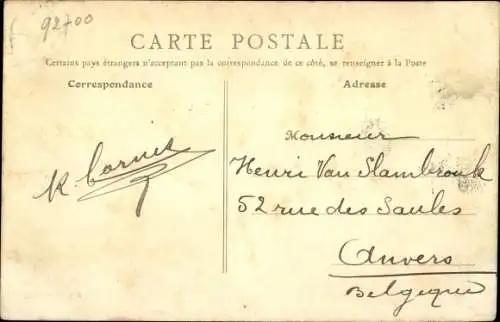 92700
CARTE POSTALE
Certains pays étrangers n'acceptant pas la correspondance de ce côté, se renseigner à la Poste
Correspondance
Adresse
Monsieur
Henri Van Slambrouk
52 rue des Saules
Anvers
Belgique
K.